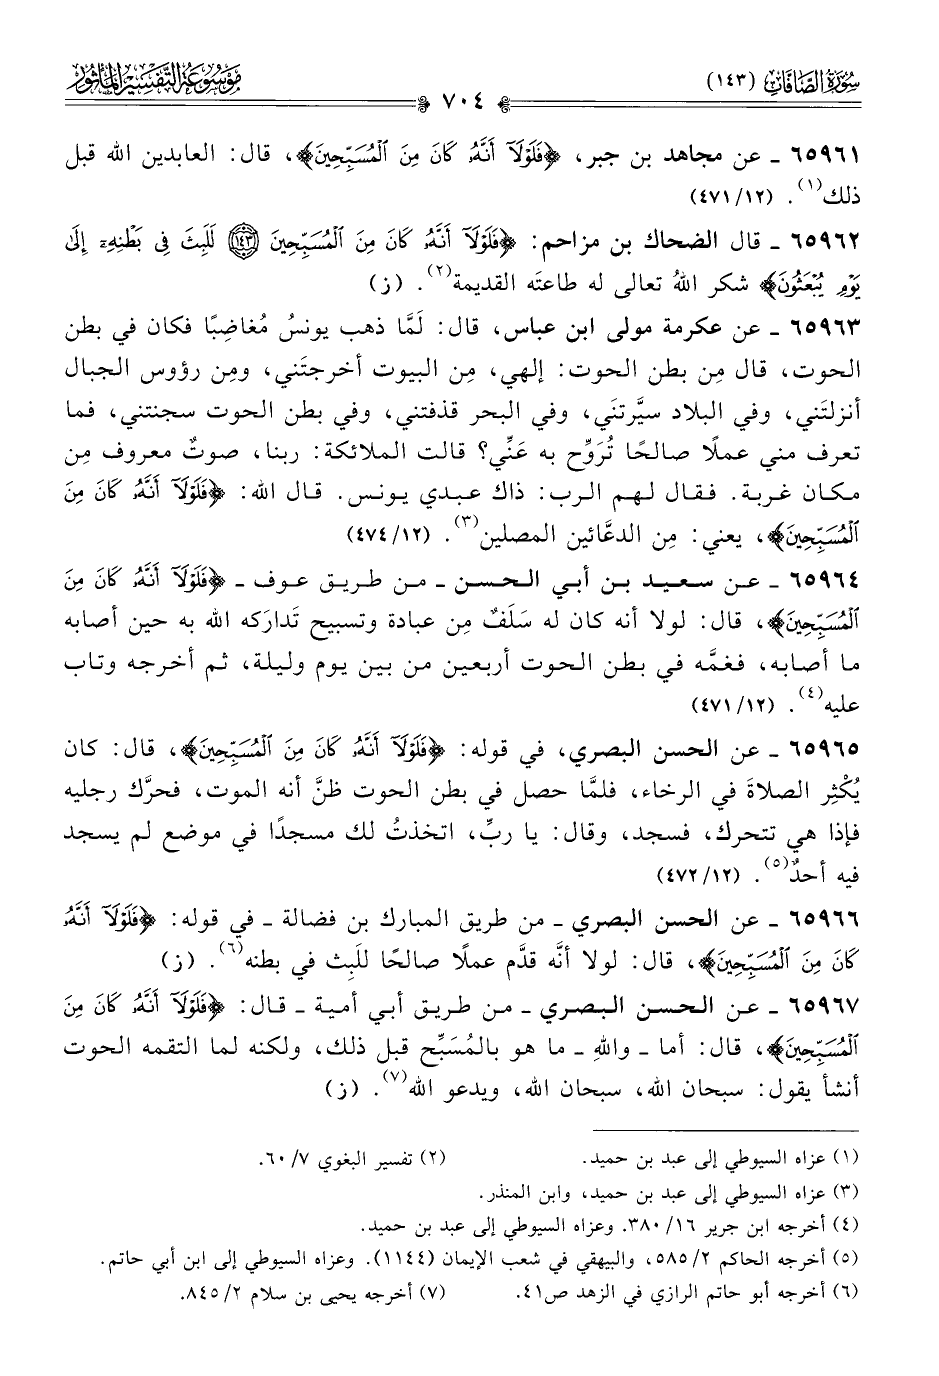 سُورَةُ الصَّافَّاتِ (١٤٣)
مَوْسُوعَةُ التَّفْسِيرِ الْمَأْثُورِ
٧٠٤
٦٥٩٦١ ـ عن مجاهد بن جبر، ﴿فَلَوْلَآ أَنَّهُۥ كَانَ مِنَ ٱلْمُسَبِّحِينَ﴾، قال: العابدين الله قبل
ذلك(١). (١٢/ ٤٧١)
٦٥٩٦٢ ـ قال الضحاك بن مزاحم: ﴿فَلَوْلَآ أَنَّهُۥ كَانَ مِنَ ٱلْمُسَبِّحِينَ ١٤٣ لَلَبِثَ فِى بَطْنِهِۦٓ إِلَىٰ
يَوْمِ يُبْعَثُونَ﴾ شكر اللهُ تعالى له طاعتَه القديمة(٢). (ز)
٦٥٩٦٣ ـ عن عكرمة مولى ابن عباس، قال: لَمَّا ذهب يونسُ مُغاضِبًا فكان في بطن
الحوت، قال مِن بطن الحوت: إلهي، مِن البيوت أخرجتَني، ومِن رؤوس الجبال
أنزلتَني، وفي البلاد سيَّرتنَي، وفي البحر قذفتني، وفي بطن الحوت سجنتني، فما
تعرف مني عملًا صالحًا تُرَوِّح به عَنِّي؟ قالت الملائكة: ربنا، صوتٌ معروف مِن
مكان غربة. فقال لهم الرب: ذاك عبدي يونس. قال الله: ﴿فَلَوْلَآ أَنَّهُۥ كَانَ مِنَ
ٱلْمُسَبِّحِينَ﴾، يعني: مِن الدعَّائين المصلين(٣). (١٢/ ٤٧٤)
٦٥٩٦٤ ـ عن سعيد بن أبي الحسن ـ من طريق عوف ـ ﴿فَلَوْلَآ أَنَّهُۥ كَانَ مِنَ
ٱلْمُسَبِّحِينَ﴾، قال: لولا أنه كان له سَلَفٌ مِن عبادة وتسبيح تَدارَكه الله به حين أصابه
ما أصابه، فغمَّه في بطن الحوت أربعين من بين يوم وليلة، ثم أخرجه وتاب
عليه(٤). (١٢/ ٤٧١)
٦٥٩٦٥ ـ عن الحسن البصري، في قوله: ﴿فَلَوْلَآ أَنَّهُۥ كَانَ مِنَ ٱلْمُسَبِّحِينَ﴾، قال: كان
يُكْثِر الصلاةَ في الرخاء، فلمَّا حصل في بطن الحوت ظنَّ أنه الموت، فحرَّك رجليه
فإذا هي تتحرك، فسجد، وقال: يا ربِّ، اتخذتُ لك مسجدًا في موضع لم يسجد
فيه أحدٌ(٥). (١٢/ ٤٧٢)
٦٥٩٦٦ ـ عن الحسن البصري ـ من طريق المبارك بن فضالة ـ في قوله: ﴿فَلَوْلَآ أَنَّهُۥ
كَانَ مِنَ ٱلْمُسَبِّحِينَ﴾، قال: لولا أنَّه قدَّم عملًا صالحًا للَبِث في بطنه(٦). (ز)
٦٥٩٦٧ ـ عن الحسن البصري ـ من طريق أبي أمية ـ قال: ﴿فَلَوْلَآ أَنَّهُۥ كَانَ مِنَ
ٱلْمُسَبِّحِينَ﴾، قال: أما ـ واللهِ ـ ما هو بالمُسَبِّح قبل ذلك، ولكنه لما التقمه الحوت
أنشأ يقول: سبحان الله، سبحان الله، ويدعو الله(٧). (ز)
(١) عزاه السيوطي إلى عبد بن حميد. (٢) تفسير البغوي ٧/ ٦٠.
(٣) عزاه السيوطي إلى عبد بن حميد، وابن المنذر.
(٤) أخرجه ابن جرير ١٦/ ٣٨٠. وعزاه السيوطي إلى عبد بن حميد.
(٥) أخرجه الحاكم ٢/ ٥٨٥، والبيهقي في شعب الإيمان (١١٤٤). وعزاه السيوطي إلى ابن أبي حاتم.
(٦) أخرجه أبو حاتم الرازي في الزهد ص٤١. (٧) أخرجه يحيى بن سلام ٢/ ٨٤٥.